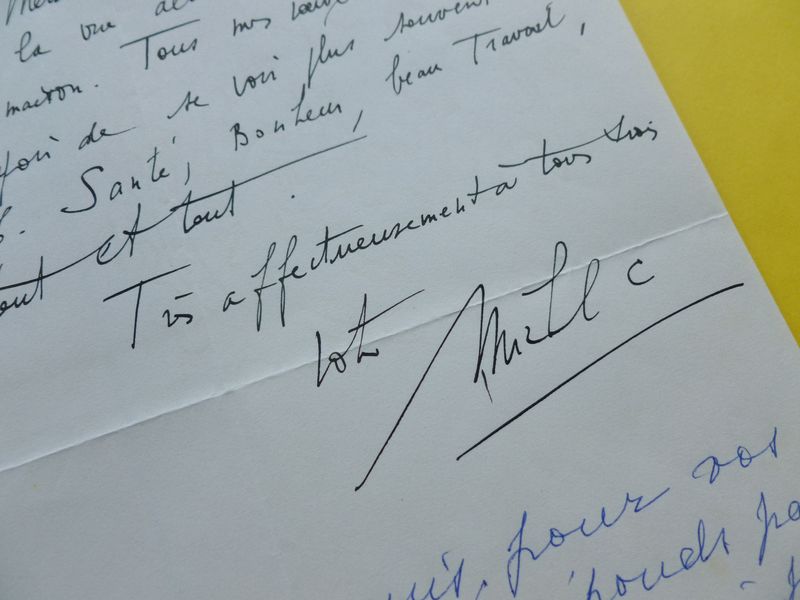 la vue
maison. Tous mes vœux
de se voir plus souvent
Santé, Bonheur, beau Travail,
et tout.
Très affectueusement à tous trois
Votre
Michel C
pour vos